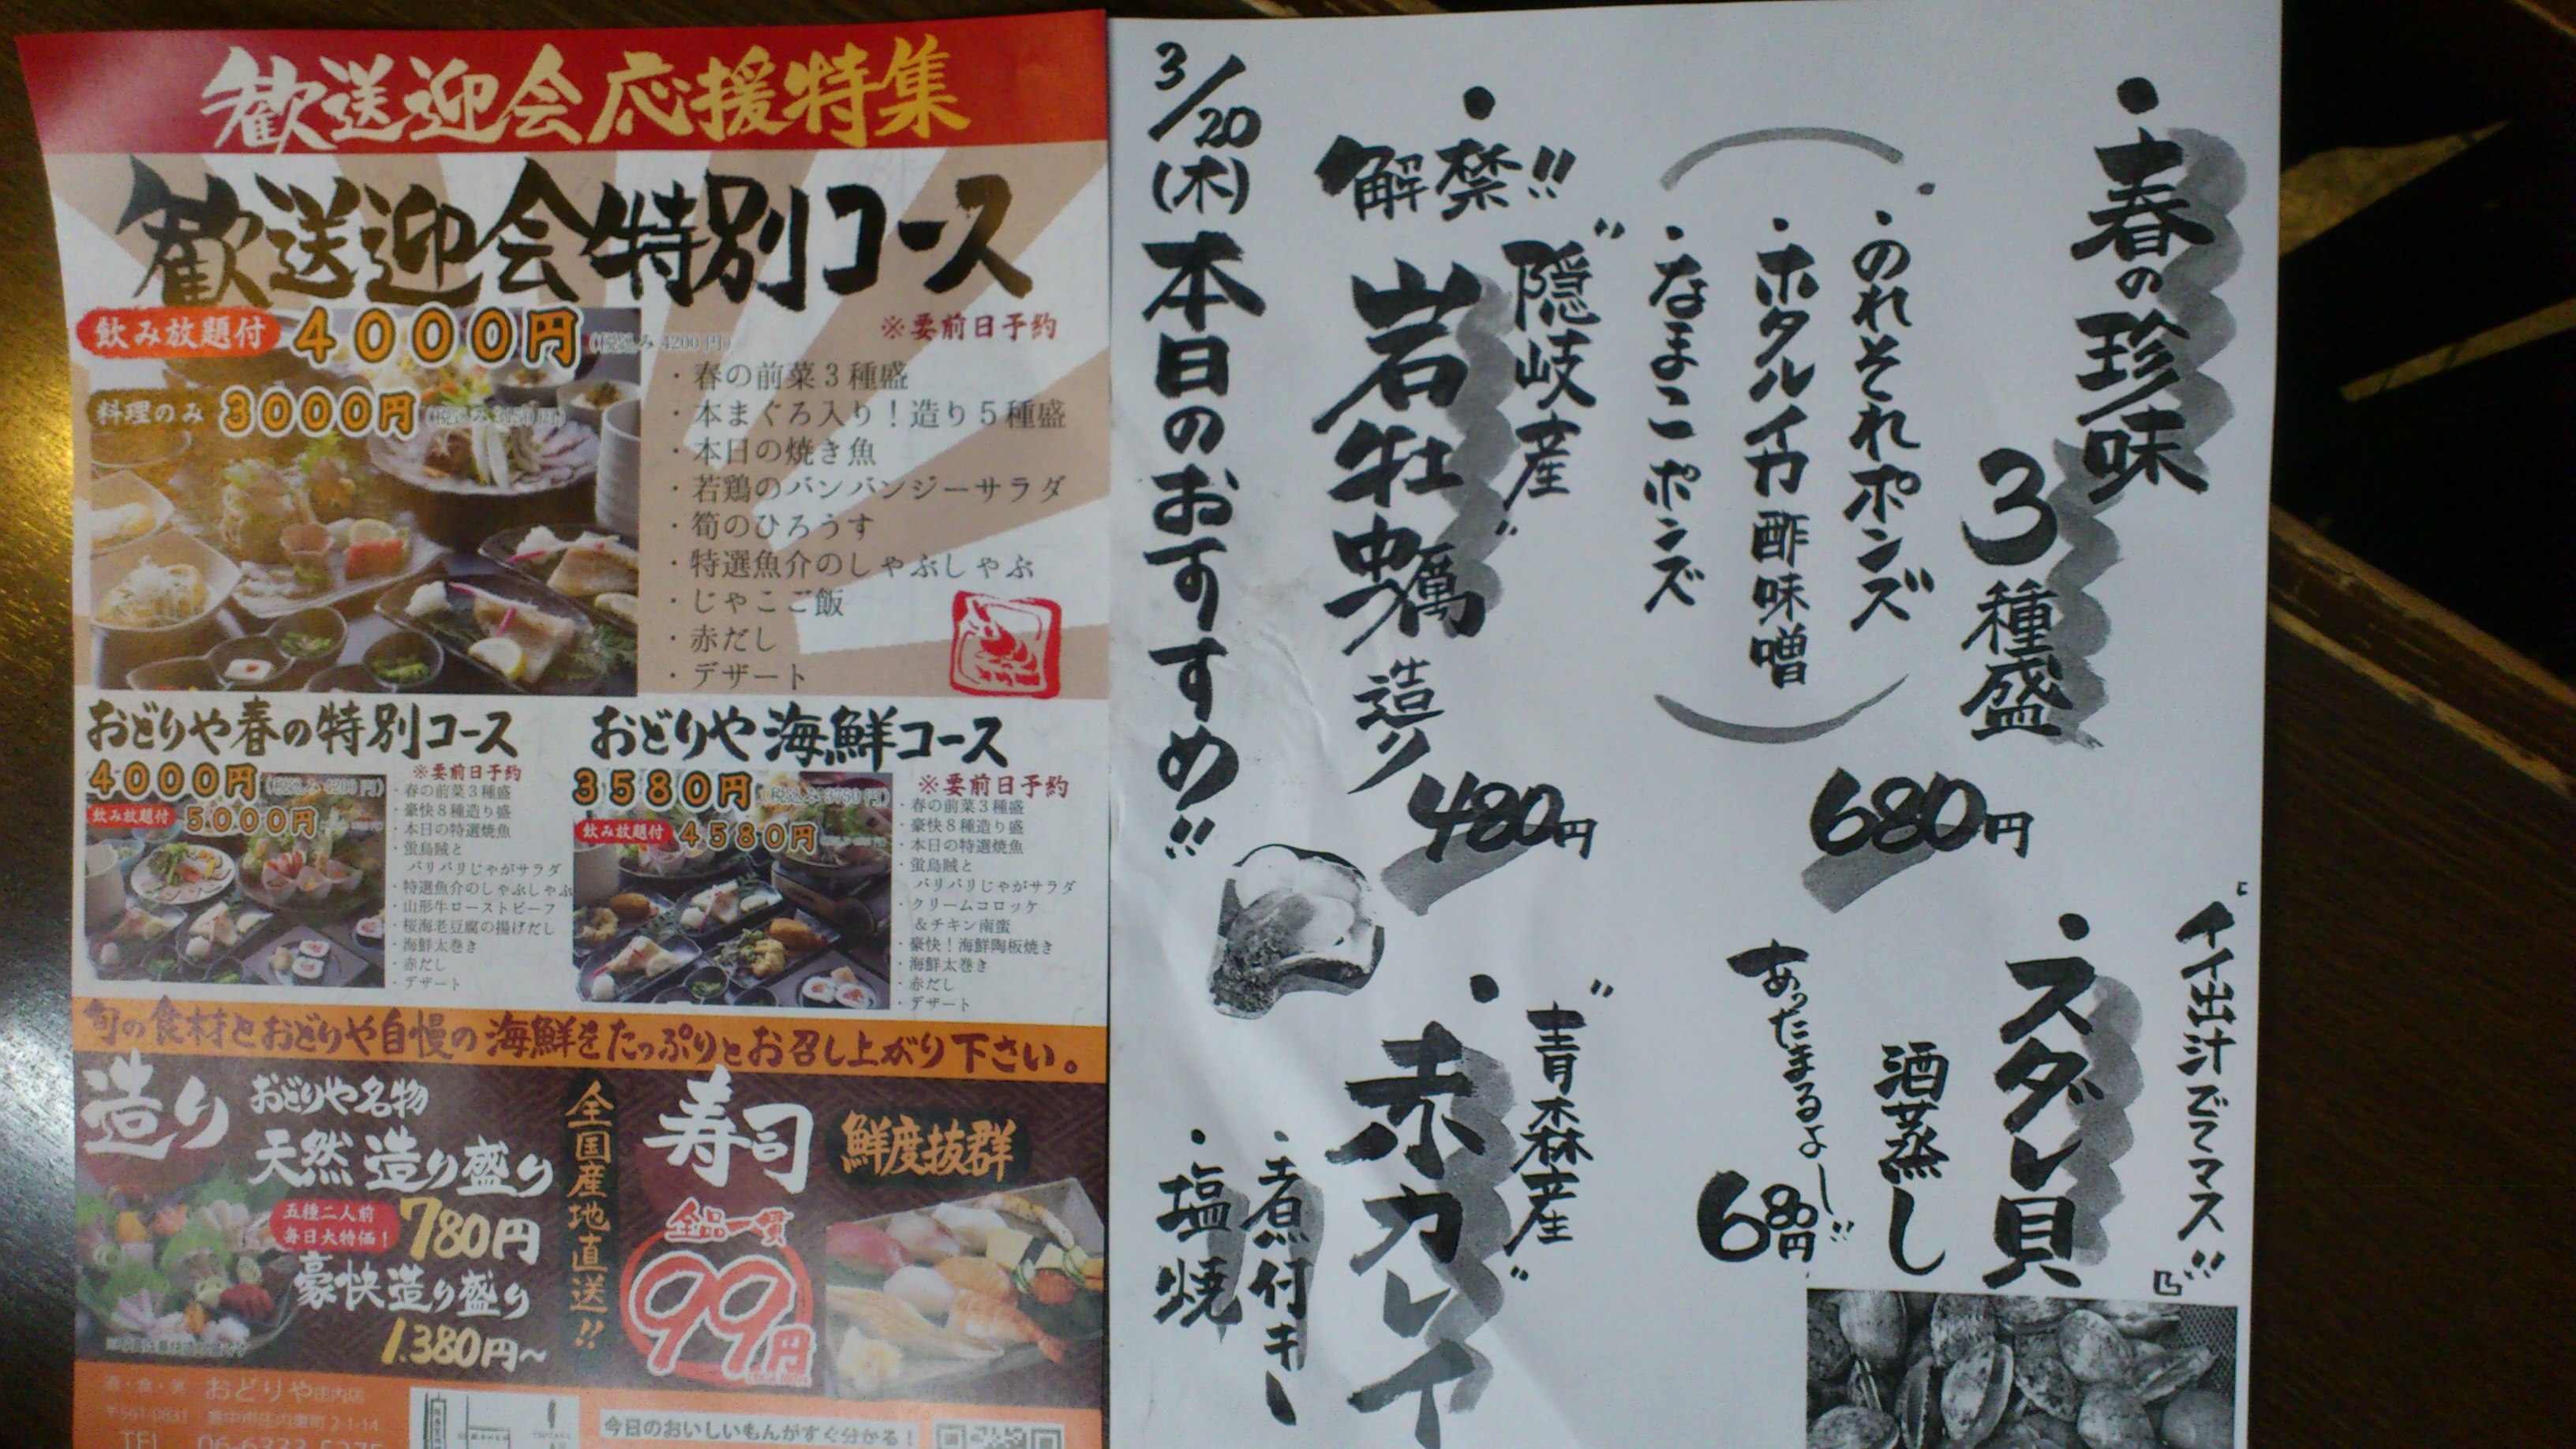 歓送迎会応援特集
歓送迎会特別コース
飲み放題付 4000円(税込み 4200円)
※要前日予約
料理のみ 3000円(税込み 3150円)
・春の前菜3種盛
・本まぐろ入り!造り5種盛
・本日の焼き魚
・若鶏のバンバンジーサラダ
・筍のひろうす
・特選魚介のしゃぶしゃぶ
・じゃこご飯
・赤だし
・デザート
おどりや春の特別コース
4000円(税込み 4200円)
※要前日予約
飲み放題付 5000円
・春の前菜3種盛
・豪快8種造り盛
・本日の特選焼魚
・蛍烏賊と
パリパリじゃがサラダ
・特選魚介のしゃぶしゃぶ
・山形牛ローストビーフ
・桜海老豆腐の揚げだし
・海鮮太巻き
・赤だし
・デザート
おどりや海鮮コース
3580円(税込み 3750円)
※要前日予約
飲み放題付 4580円
・春の前菜3種盛
・豪快8種造り盛
・本日の特選焼魚
・蛍烏賊と
パリパリじゃがサラダ
・クリームコロッケ
&チキン南蛮
・豪快!海鮮陶板焼き
・海鮮太巻き
・赤だし
・デザート
旬の食材とおどりや自慢の海鮮をたっぷりとお召し上がり下さい。
造り
おどりや名物
天然造り盛り
五種二人前
毎日大特価!
780円
豪快造り盛り
1.380円~
全国産地直送!!
寿司
鮮度抜群
全品一貫
99円
酒・食・笑 おどりや庄内店
〒561-0831 豊中市庄内東町2-1-14
TEL 06-6333-5275
今日のおいしいもんがすぐ分かる!
・春の珍味
3種盛
・のれそれポンズ
・ホタルイカ酢味噌
・なまこポンズ
680円
・解禁!!
"隠岐産"
岩牡蠣造り
480円
3/20(木)本日のおすすめ!!
「イイ出汁でてマス!!」
・スダレ貝
酒蒸し
あったまるよー!!
680円
"青森産"
・赤カレイ
・煮付き
・塩焼